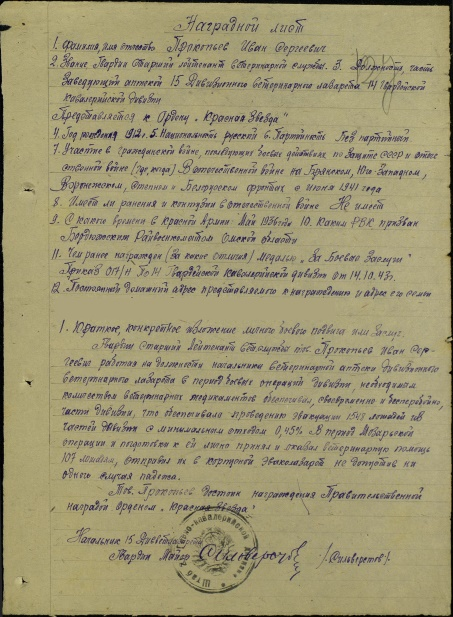 Наградной лист
1. Фамилия, имя отчество Прокопьев Иван Сергеевич
2. Звание Гвардии старший лейтенант ветеринарной службы. 3. Должность, часть
Заведующий аптекой 15 Дивизионного ветеринарного лазарета 14 Гвардейской
кавалерийской дивизии
Представляется к Ордену „Красная Звезда"
4. Год рождения 1912. 5. Национальность русский 6. Партийность Без партийный
7. Участие в гражданской войне, последующих боевых действиях по защите СССР и отече
ственной войне (где, когда) В отечественной войне на Брянском, Юго-Западном,
Воронежском, Степном и Белорусском фронтах с июня 1941 года
8. Имеет ли ранения и контузии в отечественной войне Не имеет
9. С какого времени в Красной Армии Май 1936 10. Каким РВК призван
Райвоенкоматом Омской области
11. Чем ранее награжден (за какие отличия) Медалью „За Боевые Заслуги"
Приказ 017/н По 14 Гвардейской кавалерийской дивизии от 14.10.43г.
12. Постоянный домашний адрес представляемого к награждению и адрес его семьи
1. Краткое, конкретное изложение личного боевого подвига или заслуг.
Гвардии старший лейтенант ветслужбы тов. Прокопьев Иван Сер-
геевич работая на должности начальника ветеринарной аптеки дивизионного
ветеринарного лазарета в период боевых операций дивизии, необходимым
количеством ветеринарных медикаментов обеспечивал, своевременно и бесперебойно,
части дивизии, что обеспечивало проведение эвакуации 1543 лошадей из
частей дивизии с минимальным отходом 0,45%. В период
операции и подготовки к ней лично принял и оказал ветеринарную помощь
107 лошадям, отправил их в корпусной эваколазарет не допустив ни
одного случая падежа.
Тов. Прокопьев достоин награждения Правительственной
наградой орденом „Красная Звезда".
Начальник 15 Дивветлазарета
Гвардии Майор /Сильверстов/